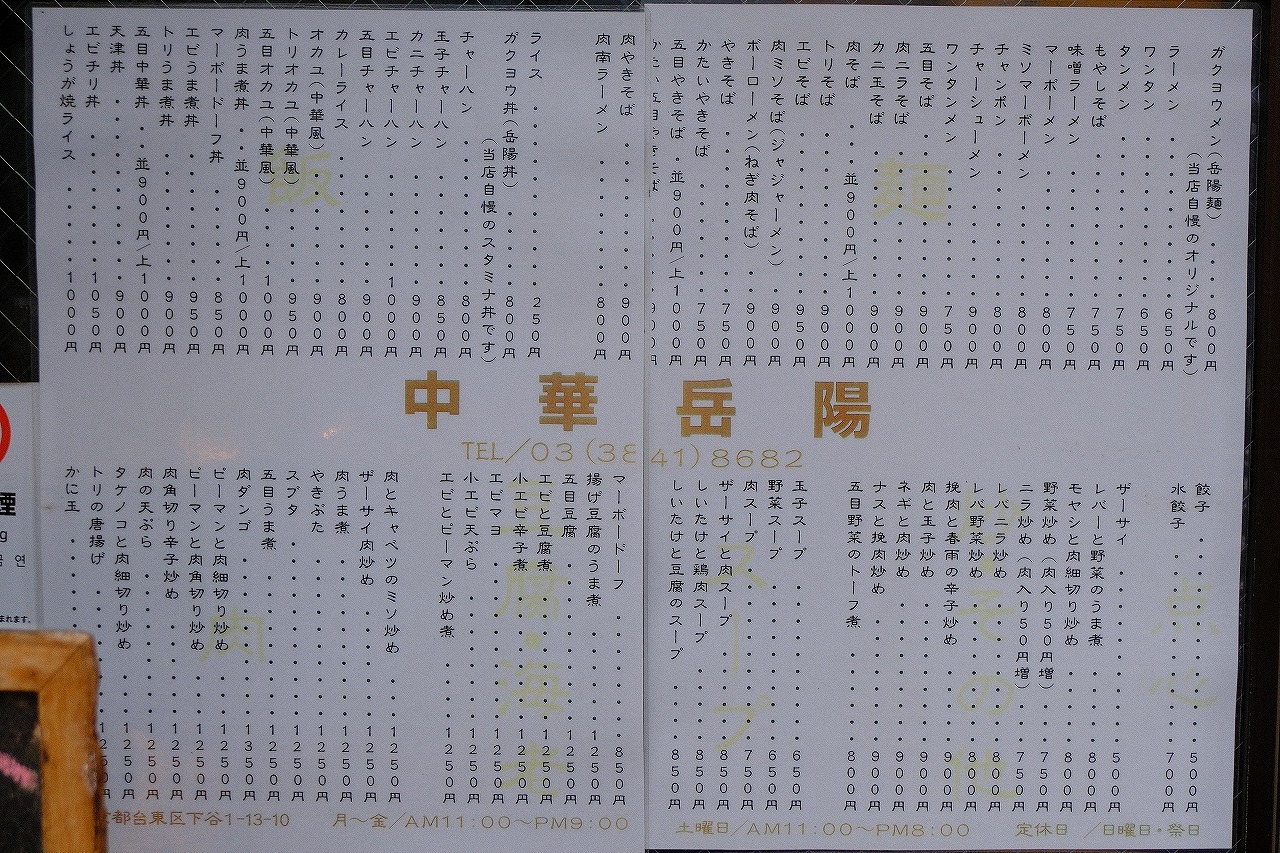 麺
ガクヨウメン(岳陽麺)・・・800円
(当店自慢のオリジナルです)
ラーメン・・・650円
ワンタン・・・650円
タンメン・・・750円
もやしそば・・・750円
味噌ラーメン・・・750円
マーボーメン・・・800円
ミソマーボーメン・・・800円
チャンポン・・・800円
チャーシューメン・・・900円
ワンタンメン・・・750円
五目そば・・・900円
肉ニラそば・・・900円
カニ玉そば・・・900円
肉そば・・並900円/上1000円
トリそば・・・900円
エビそば・・・950円
肉ミソそば(ジャジャーメン)・・・900円
ボーローメン(ねぎ肉そば)・・・900円
やきそば・・・750円
かたいやきそば・・・750円
五目やきそば・並900円/上1000円
かたい五目やきそば・・・900円
肉やきそば・・・900円
肉南ラーメン・・・800円
飯
ライス・・・250円
ガクヨウ丼(岳陽丼)・・・800円
(当店自慢のスタミナ丼です)
チャーハン・・・800円
玉子チャーハン・・・850円
カニチャーハン・・・900円
エビチャーハン・・・1000円
五目チャーハン・・・900円
カレーライス・・・800円
オカユ(中華風)・・・900円
トリオカユ(中華風)・・・950円
五目オカユ(中華風)・・・1000円
肉うま煮丼・・並900円/上1000円
マーボードーフ丼・・・850円
エビうま煮丼・・・950円
トリうま煮丼・・・900円
五目中華丼・・並900円/上1000円
天津丼・・・900円
エビチリ丼・・・1050円
しょうが焼ライス・・・1000円
中華岳陽
TEL/03(3841)8682
点心
餃子・・・500円
水餃子・・・700円
その他
ザーサイ・・・500円
レバーと野菜のうま煮・・・800円
モヤシと肉細切り炒め・・・800円
野菜炒め(肉入り50円増)・・・750円
ニラ炒め(肉入り50円増)・・・750円
レバニラ炒め・・・800円
レバ野菜炒め・・・800円
挽肉と春雨の辛子炒め・・・900円
肉と玉子炒め・・・900円
ネギと肉炒め・・・900円
ナスと挽肉炒め・・・900円
五目野菜のトーフ煮・・・800円
スープ
玉子スープ・・・650円
野菜スープ・・・650円
肉スープ・・・750円
ザーサイと肉スープ・・・850円
しいたけと鶏肉スープ・・・850円
しいたけと豆腐のスープ・・・850円
豆腐・海老
マーボードーフ・・・850円
揚げ豆腐のうま煮・・・1250円
五目豆腐・・・1250円
エビと豆腐煮・・・1250円
小エビ辛子煮・・・1250円
エビマヨ・・・1250円
小エビ天ぷら・・・1250円
エビとピーマン炒め煮・・・1250円
肉
肉とキャベツのミソ炒め・・・1250円
ザーサイ肉炒め・・・1250円
肉うま煮・・・1250円
やきぶた・・・1250円
スブタ・・・1250円
五目うま煮・・・1250円
肉ダンゴ・・・1350円
ピーマンと肉細切り炒め・・・1250円
ピーマンと肉角切り炒め・・・1250円
肉角切り辛子炒め・・・1250円
肉の天ぷら・・・1250円
タケノコと肉細切り炒め・・・1250円
トリの唐揚げ・・・1250円
かに玉・・・
都台東区下谷1-13-10
月〜金/AM11:00〜PM9:00
土曜日/AM11:00〜PM8:00
定休日/日曜日・祭日